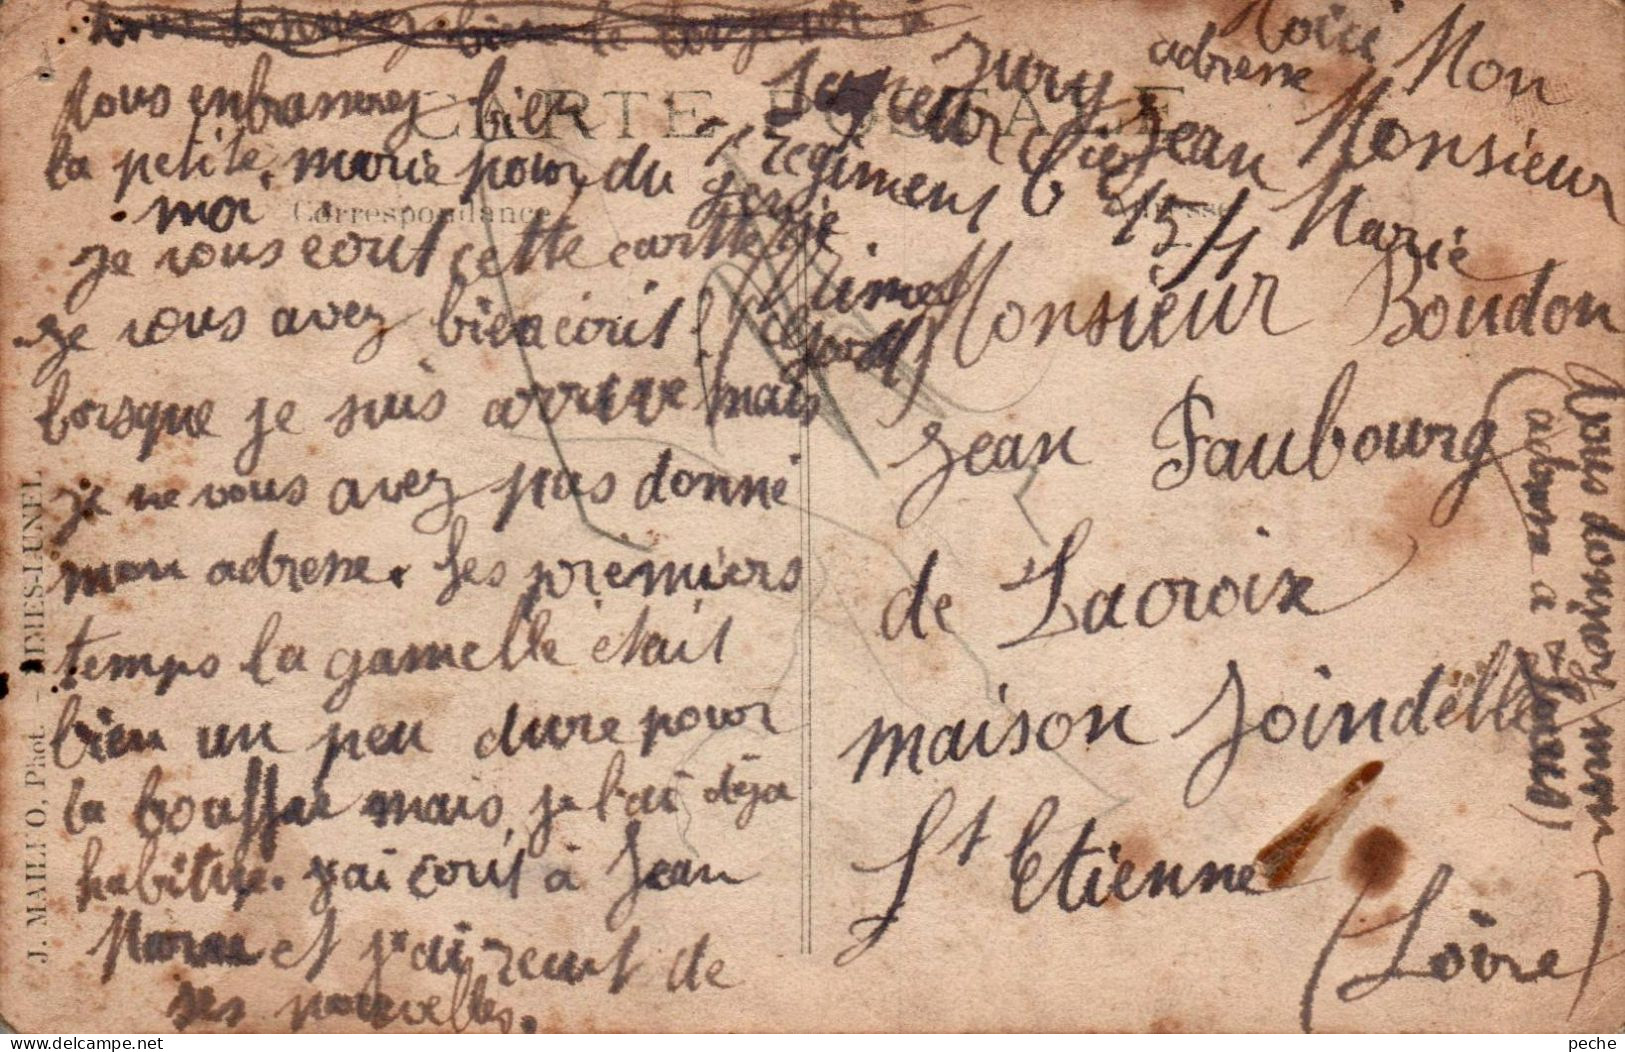 vous donnerez bien le bonjour à
Vous enbasserez bien
la petite marie pour
moi
je vous ecrit cette cartte je
je vous avez bien ecrit
lorsque je suis arrivé mais
je ne vous avez pas donné
mon adresse. Les premiers
temps la gamelle était
bien un peu dure pour
la bouffer mais je l'ai déja
habituée. j'ai ecrit à Jean
Marie et j'ai reçut de
ses nouvelles.
CARTE POSTALE
Correspondance
Adresse
Voici Mon
adresse
Jury Jean Marie
Sapeur
du 7 regiment
genie
15/1
Nimes
(Gard)
Monsieur
Monsieur Boudon
Jean Faubourg
de Lacroix
maison Joindelle
St Etienne
(Loire)
vous donnerez mon
adresse a
J. MAILLO, Phot. - NIMES-LUNEL
peche